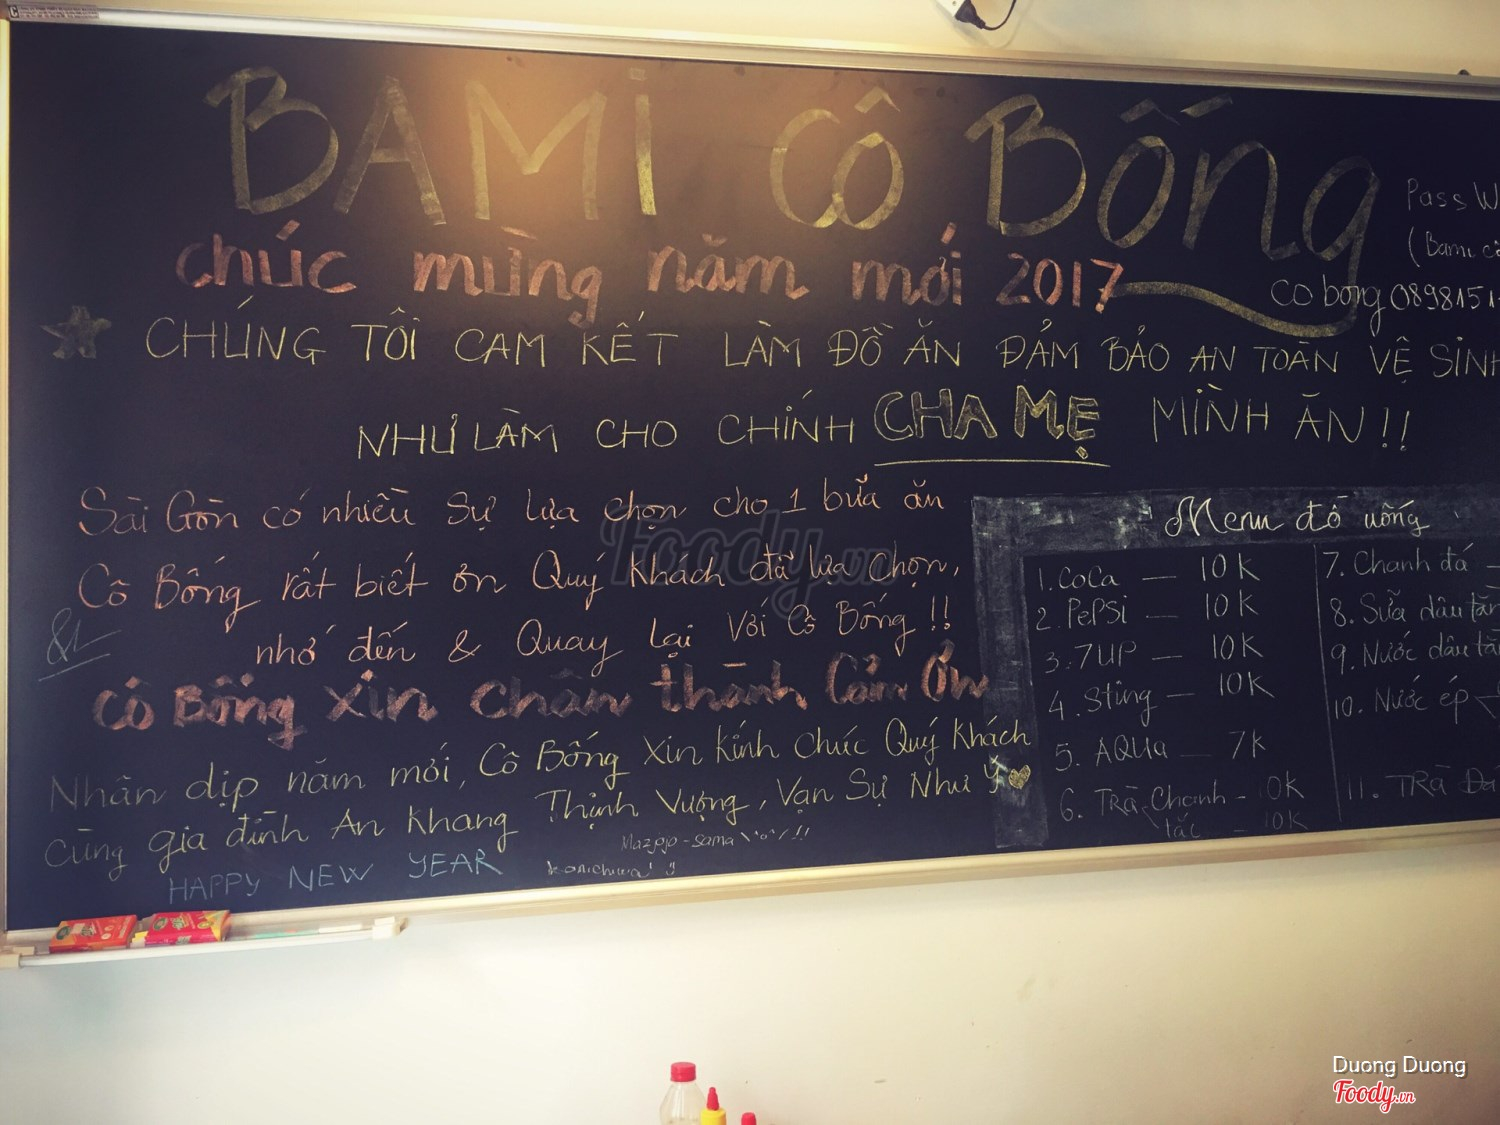 BAMI CÔ Bống
Pass W
(Bami cô
chúc mừng năm mới 2017
cô bống 0898151
CHÚNG TÔI CAM KẾT LÀM ĐỒ ĂN ĐẢM BẢO AN TOÀN VỆ SINH
NHƯ LÀM CHO CHÍNH CHA MẸ MÌNH ĂN!!
Sài Gòn có nhiều sự lựa chọn cho 1 bữa ăn
Cô Bống rất biết ơn Quý khách đã lựa chọn,
nhớ đến & Quay lại với Cô Bống!!
Cô Bống xin chân thành Cảm Ơn
Nhân dịp năm mới, Cô Bống xin kính chúc Quý khách
cùng gia đình An khang Thịnh Vượng, Vạn Sự Như Ý
HAPPY NEW YEAR
Mazojo-sama \'o'/!!
konichiwa
Menu đồ uống
1. COCA — 10K
2. PePSi — 10K
3. 7UP — 10K
4. Sting — 10K
5. AQUa — 7K
6. TRÀ Chanh - 10K
tắc - 10K
7. Chanh đá —
8. Sữa dâu tằ
9. Nước dâu tằ
10. Nước ép
11. TRÀ Đá
Foody.vn
Duong Duong
Foody.vn